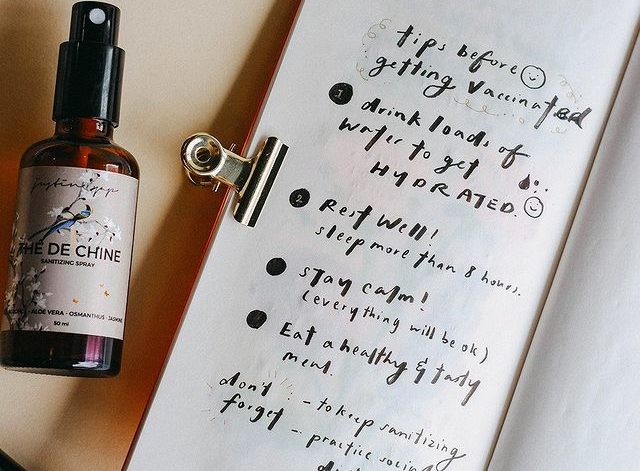 justine yap
THÉ DE CHINE
SANITIZING SPRAY
ALOE VERA - OSMANTHUS - JASMINE
50 ml
tips before
getting vaccinated
1 drink loads of
water to get
HYDRATED.
2 Rest well!
sleep more than 8 hours.
stay calm!
(everything will be ok)
Eat a healthy & tasty
meal.
don't
forget
- to keep sanitizing
- practice social